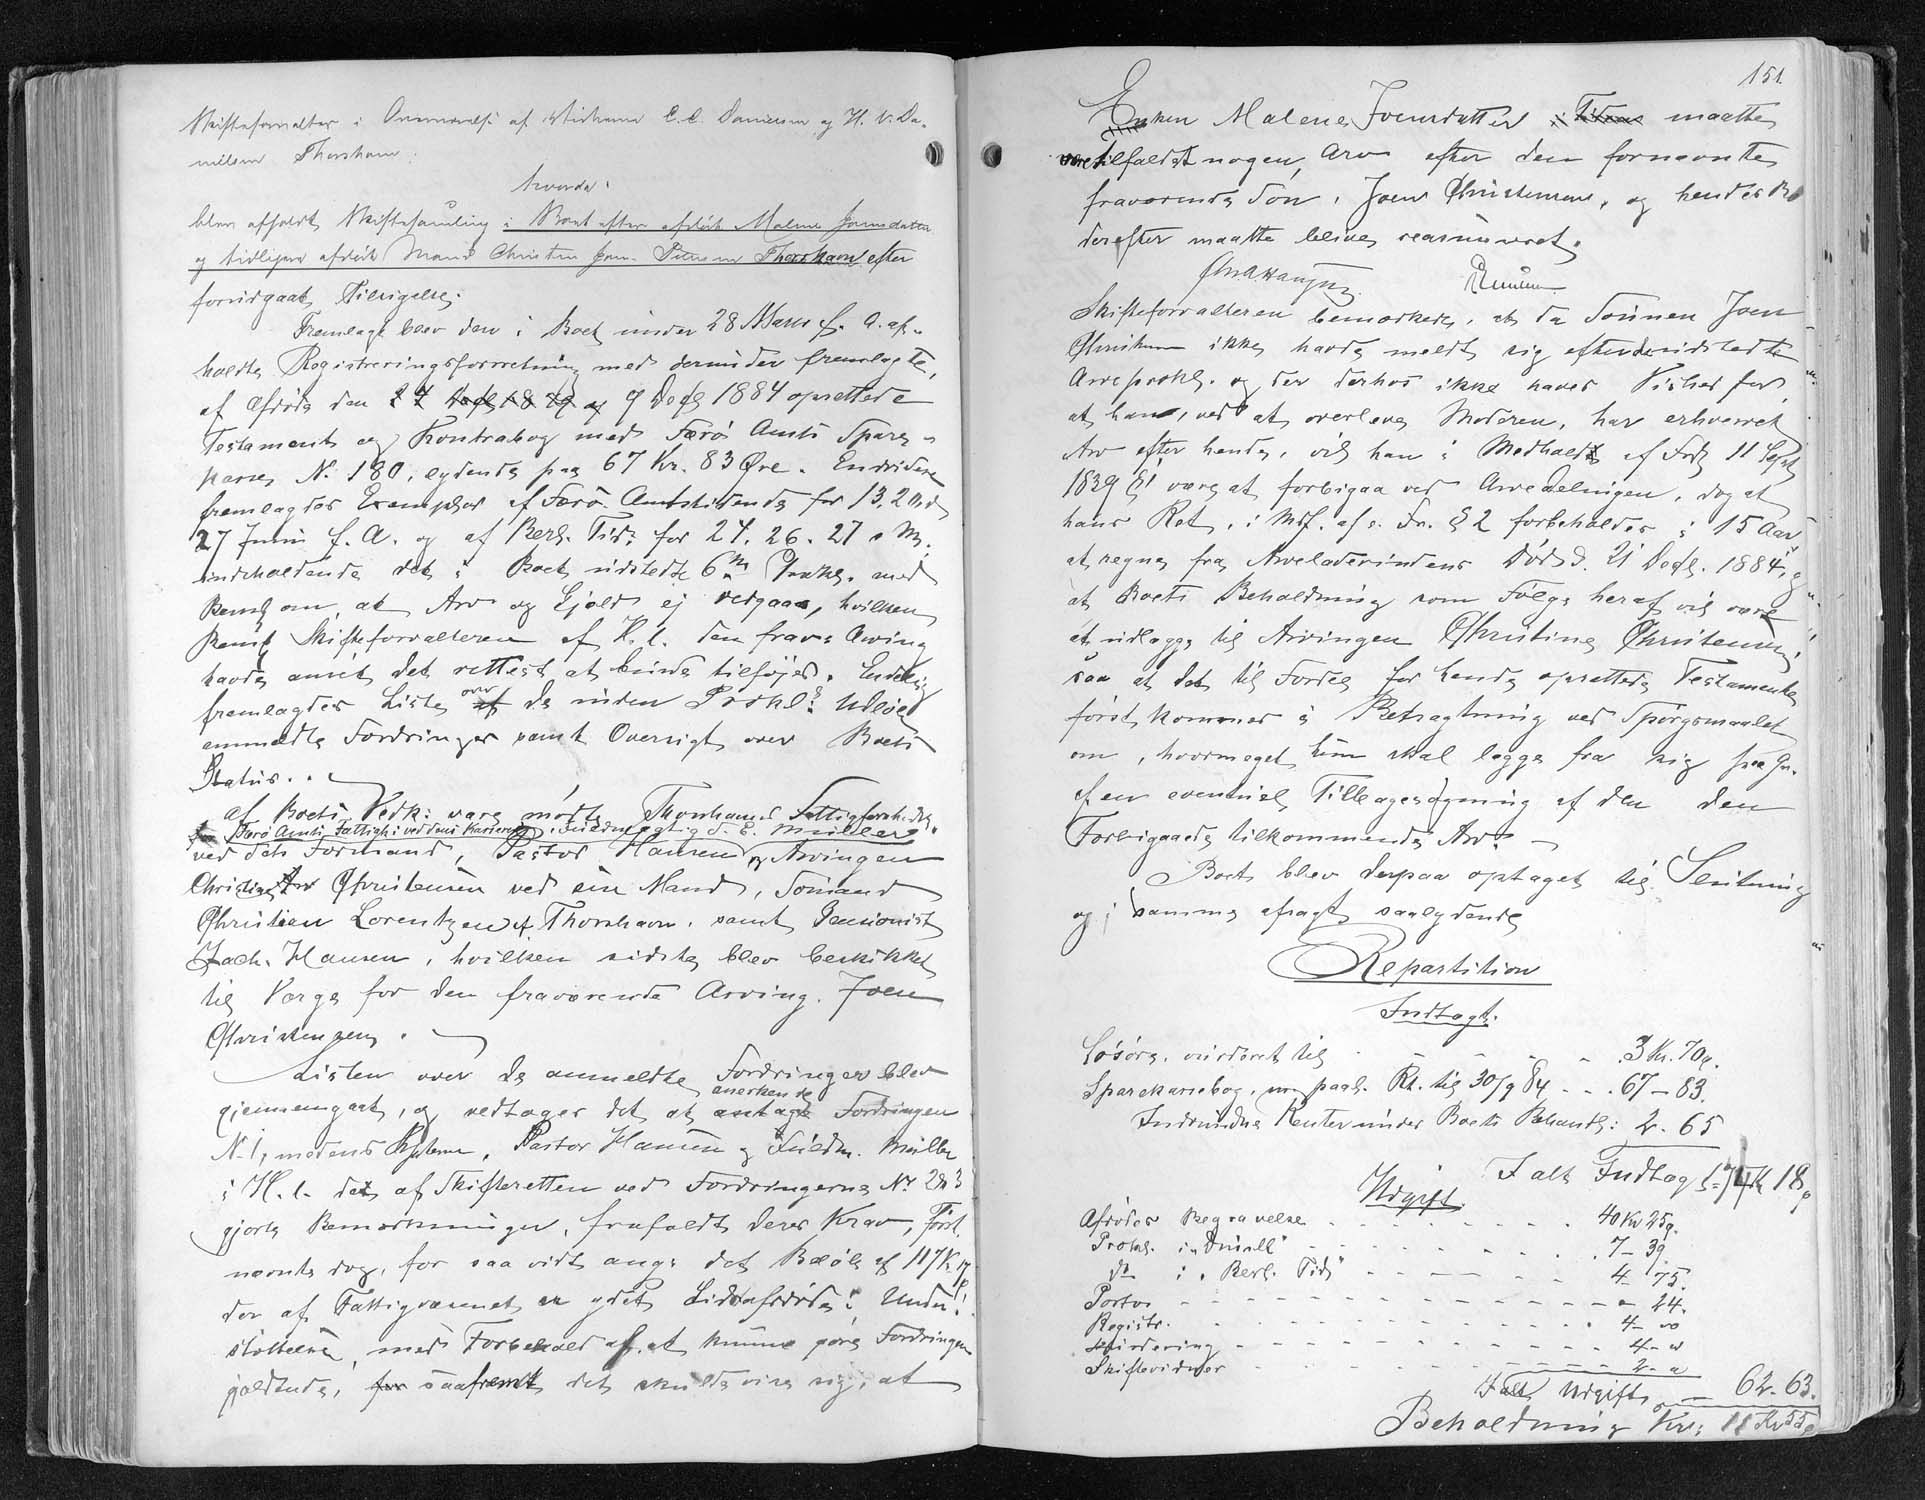 Skifteforvalter i Overværelse af Vidnerne E. C. Danielsen og H. V. Da-
nielsen Thorshavn.
hvorda:
blev afholdt Skiftesamling i Boet efter afdøde Malene Joensdatter
og tidligere afdøde Mand Christen Joen Thorshavn efter
forudgaaet Tilsigelse.
Fremlagt blev den i Boet under 28 Marts f. A. af-
holdte Registreringsforretning med derunder fremlagte,
af Afdøde den 9 Decb 1884 oprettede
Testament og Kontrabog med Færø Amts Spare-
kasse No. 180, lydende paa 67 Kr. 83 Øre. Endvidere
fremlagdes Exemplar af Færø Amtstidende for 13, 20 og
27 Juni f. A. og af Berl. Tid: for 24. 26. 27 s. M.
indeholdende det i Boet udstedte 6 m Prokl. med
Bemk om, at Arv og Gjæld ej vedgaaes, hvilken
Bemk Skifteforvalteren af H. t. den frav: Arving
havde anset det rettest at burde tilføjes. Endelig
fremlagdes Liste over de inden Prokl:s Udløb
anmeldte Fordringer samt Oversigt over Boets
Status.
af Boets Vedk: vare mødte Thorshavns Fattigforstander-
Færø Amts Fattigk: ved dens Kasserer, Fuldmægtig J. C. Müller
ved dets Formand, Pastor Hansen og Arvingen
Christine Christensen ved sin Mand, Sømand
Christian Lorentzen af Thorshavn, samt Pensionist
Zach. Hansen, hvilken sidste blev beskikket
til Værge for den fraværende Arving Joen
Christensen.
Listen over de anmeldte Fordringer blev
gjennemgaaet, og vedtoges det at anerkende Fordringen
N. 1, medens Pastor Hansen og Fuldm. Müller
i H. t. de af Skifteretten ved Fordringerne No 2 & 3
gjorte Bemærkninger, frafaldt deres Krav, Først-
nævnte dog, for saa vidt ang: det Beløb af 117 Kr. 17
der af Fattigvæsenet er ydet Sidstafdøde i Under-
støttelse, med Forbehold af at kunne gøre Fordringen
gjældende, saafremt det skulde vise sig, at
151
Enken Malene Joensdatter maatte
være tilfaldet nogen Arv efter den fornævnte
fraværende Søn, Joen Christensen, og hendes Bo
derefter maatte blive reassumeret.
Skifteforvalteren bemærkede, at da Sønnen Joen
Christensen ikke havde meldt sig efter det udstedte
Arveprokl. og der derhos ikke haves Vished for,
at han, ved at overleve Moderen, har erhvervet
Arv efter hende, vil han i Medhold af Frdg 11 Septb
1839 § 1 være at forbigaa ved Arvedelingen, dog at
hans Ret, i Mdf. af s. Fr. § 2 forbeholdes i 15 Aar
at regne fra Arveladerindens Død d. 21 Decb. 1884, og
at Boets Beholdning som Følge heraf vil være
at udlægge til Arvingen Christine Christensen,
saa at det til Fordel for hende oprettede Testamente
først kommer i Betragtning ved Spørgsmaalet
om, hvormeget hun skal lægge fra sig paa Gr.
af en eventuel Tilbagesøgning af den den
Forbigaaede tilkommende Arv.
Boet blev derpaa optaget til Slutning
og i samme afsagt saalydende
Repartition
Indtægt.
Løsøre, vurderet til - - - 3 Kr. 70 ø.
Sparekassebog, m paal. Rt. til 30/9 84 - - 67 - 83.
Indvundne Renter under Boets Behandl: 2. 65
I alt Indtægt 74 Kr 18 ø
Udgift.
Afdødes Begravelse - - - 40 Kr 25 ø.
Prokl. i "Dimall" - - - 7 - 39
do i "Berl. Tid" - - - 4 - 75.
Porto - - - - 24.
Registr. - - - 4 - 00
Vurdering - - - 4 - "
Skiftevidner - - - 2 - "
I alt Udgift - 62 - 63.
Beholdning Kr: 11 Kr 55 ø